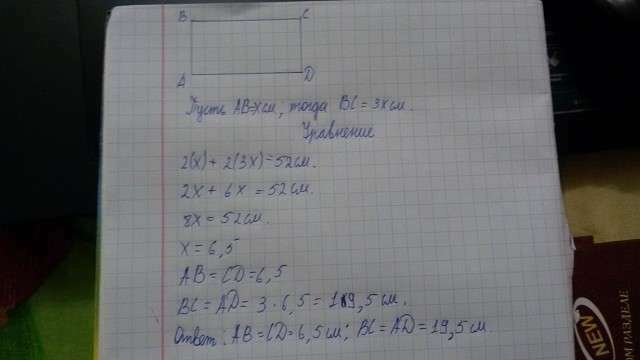 B C
A D
Пусть AB=x см, тогда BC = 3x см.
Уравнение
2(x) + 2(3x)=52 см.
2x + 6x = 52 см.
8x = 52 см.
x = 6,5
AB = CD = 6,5
BC = AD = 3 · 6,5 = 19,5 см.
Ответ: AB = CD = 6,5 см; BC = AD = 19,5 см.
NEW
РАЗДЕЛЕ